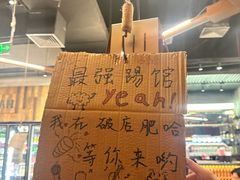 最强腸馆
yeah!
我在破店肥哈
等你来哟